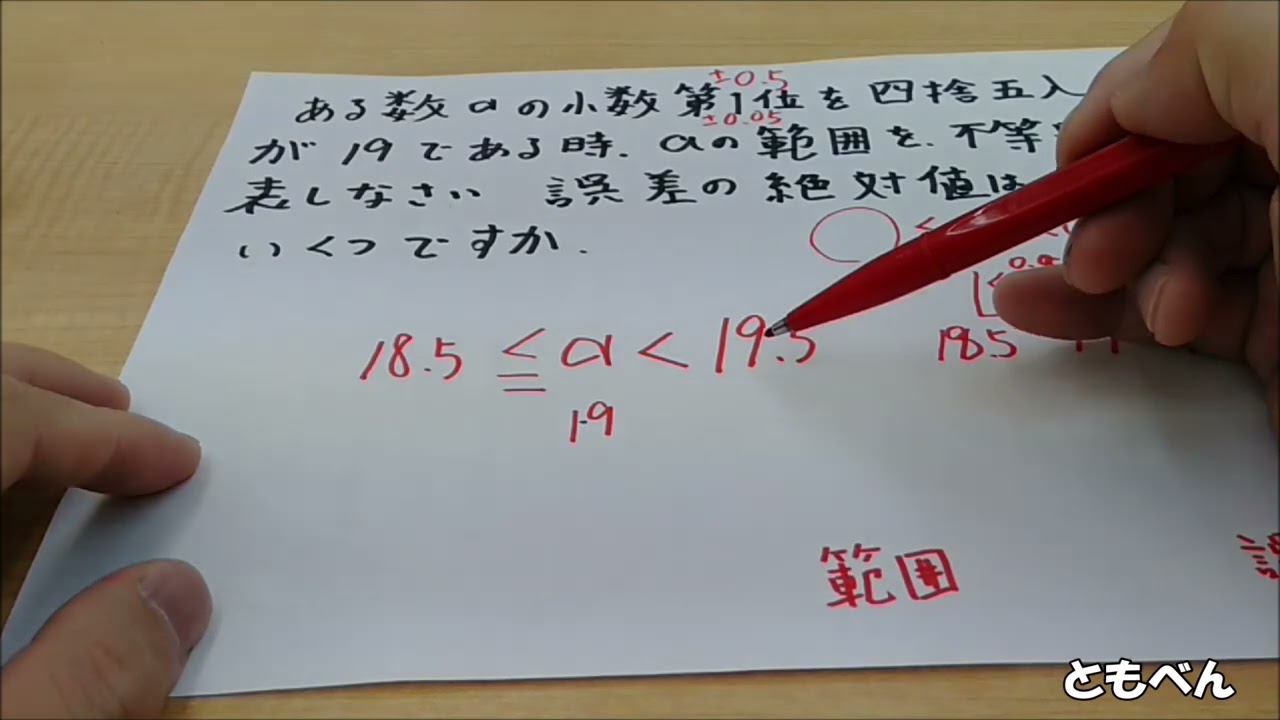 ±0.5
ある数aの小数第1位を四捨五入
±0.05
が19である時.aの範囲を.不等
表しなさい 誤差の絶対値は
いくつですか.
18.5 ≦ a < 19.5
19
18.5
範囲
ともべん